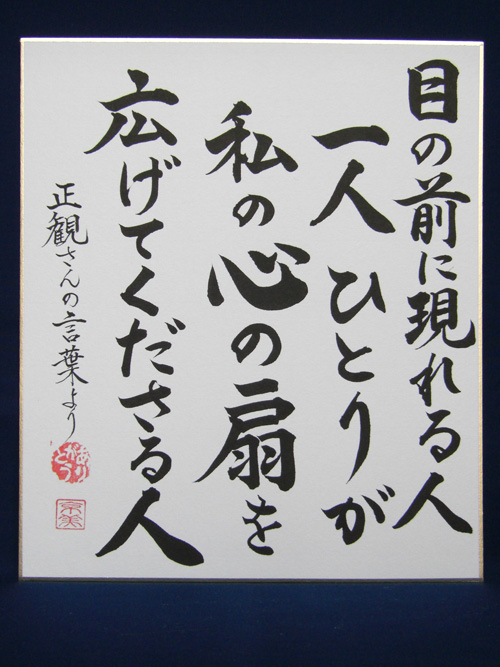 目の前に現れる人
一人ひとりが
私の心の扇を
広げてくださる人
正観さんの言葉より
ありがとう
京美